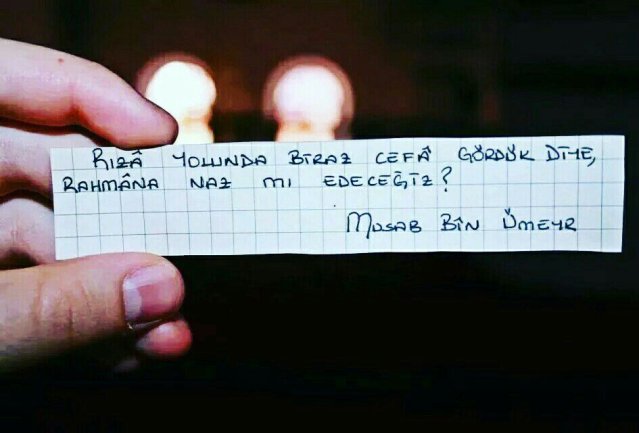 RIZÂ YOLUNDA BİRAZ CEFÂ GÖRDÜK DİYE,
RAHMÂNA NAZ MI EDECEĞİZ?
MUSAB BİN ÜMEYR